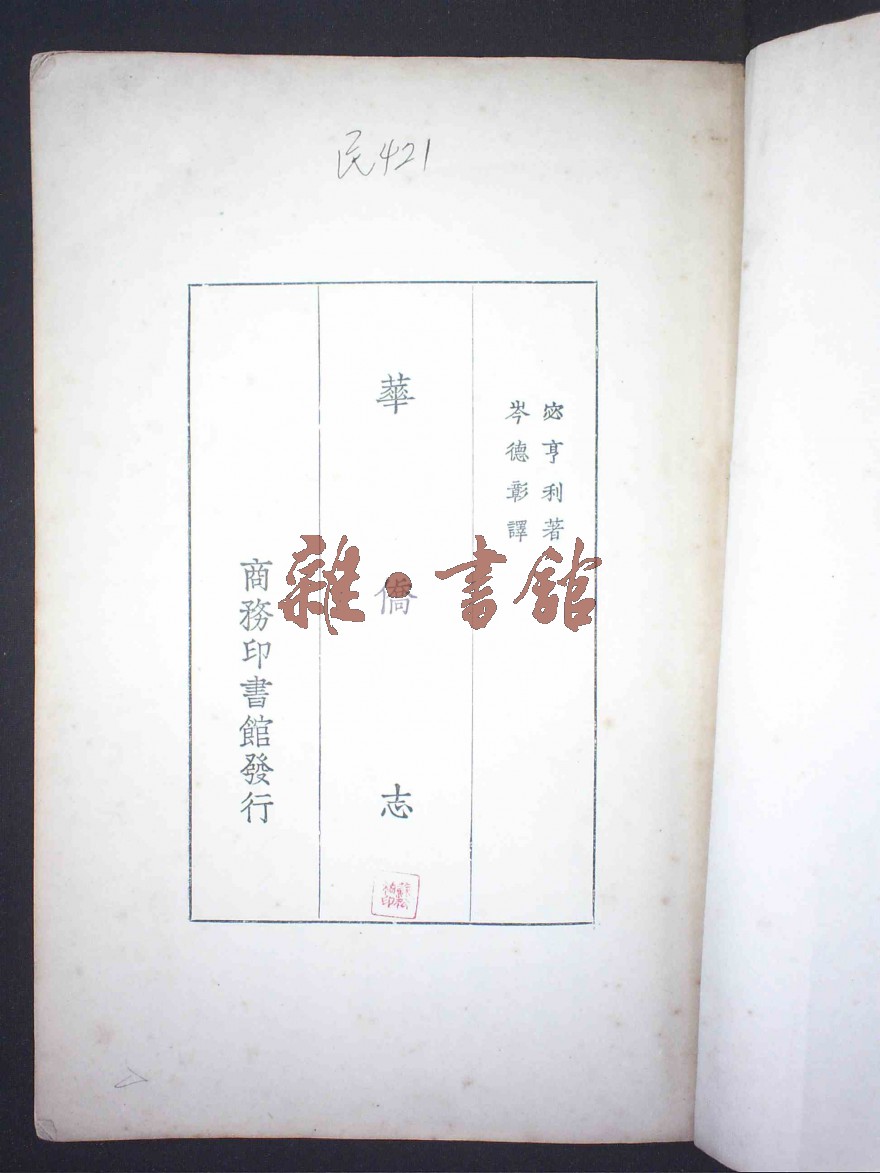 民421
宓亨利著
岑德彰譯
華僑志
商務印書館發行
雜·書館